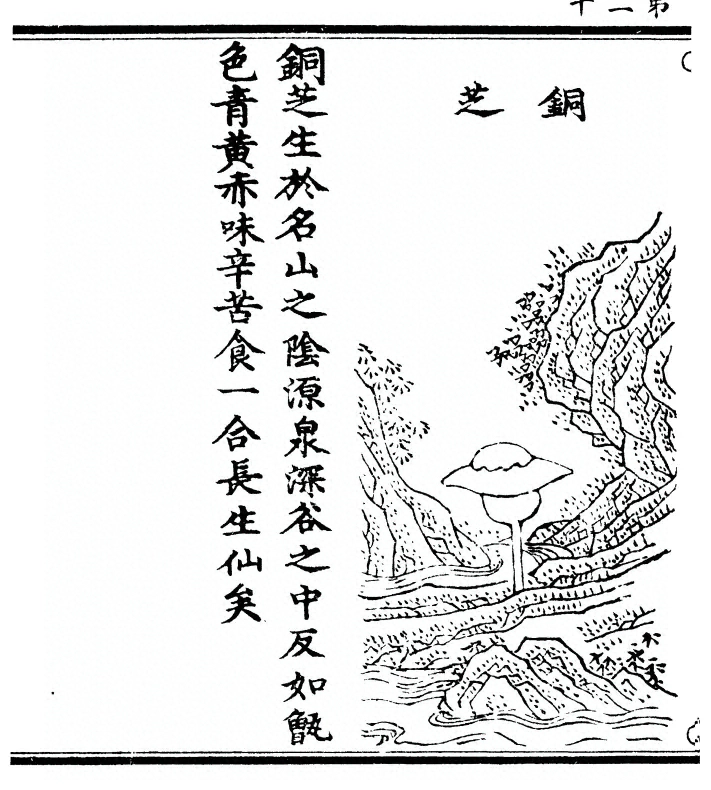 第二十
銅芝
銅芝生於名山之陰源泉深谷之中反如甑
色青黃赤味辛苦食一合長生仙矣